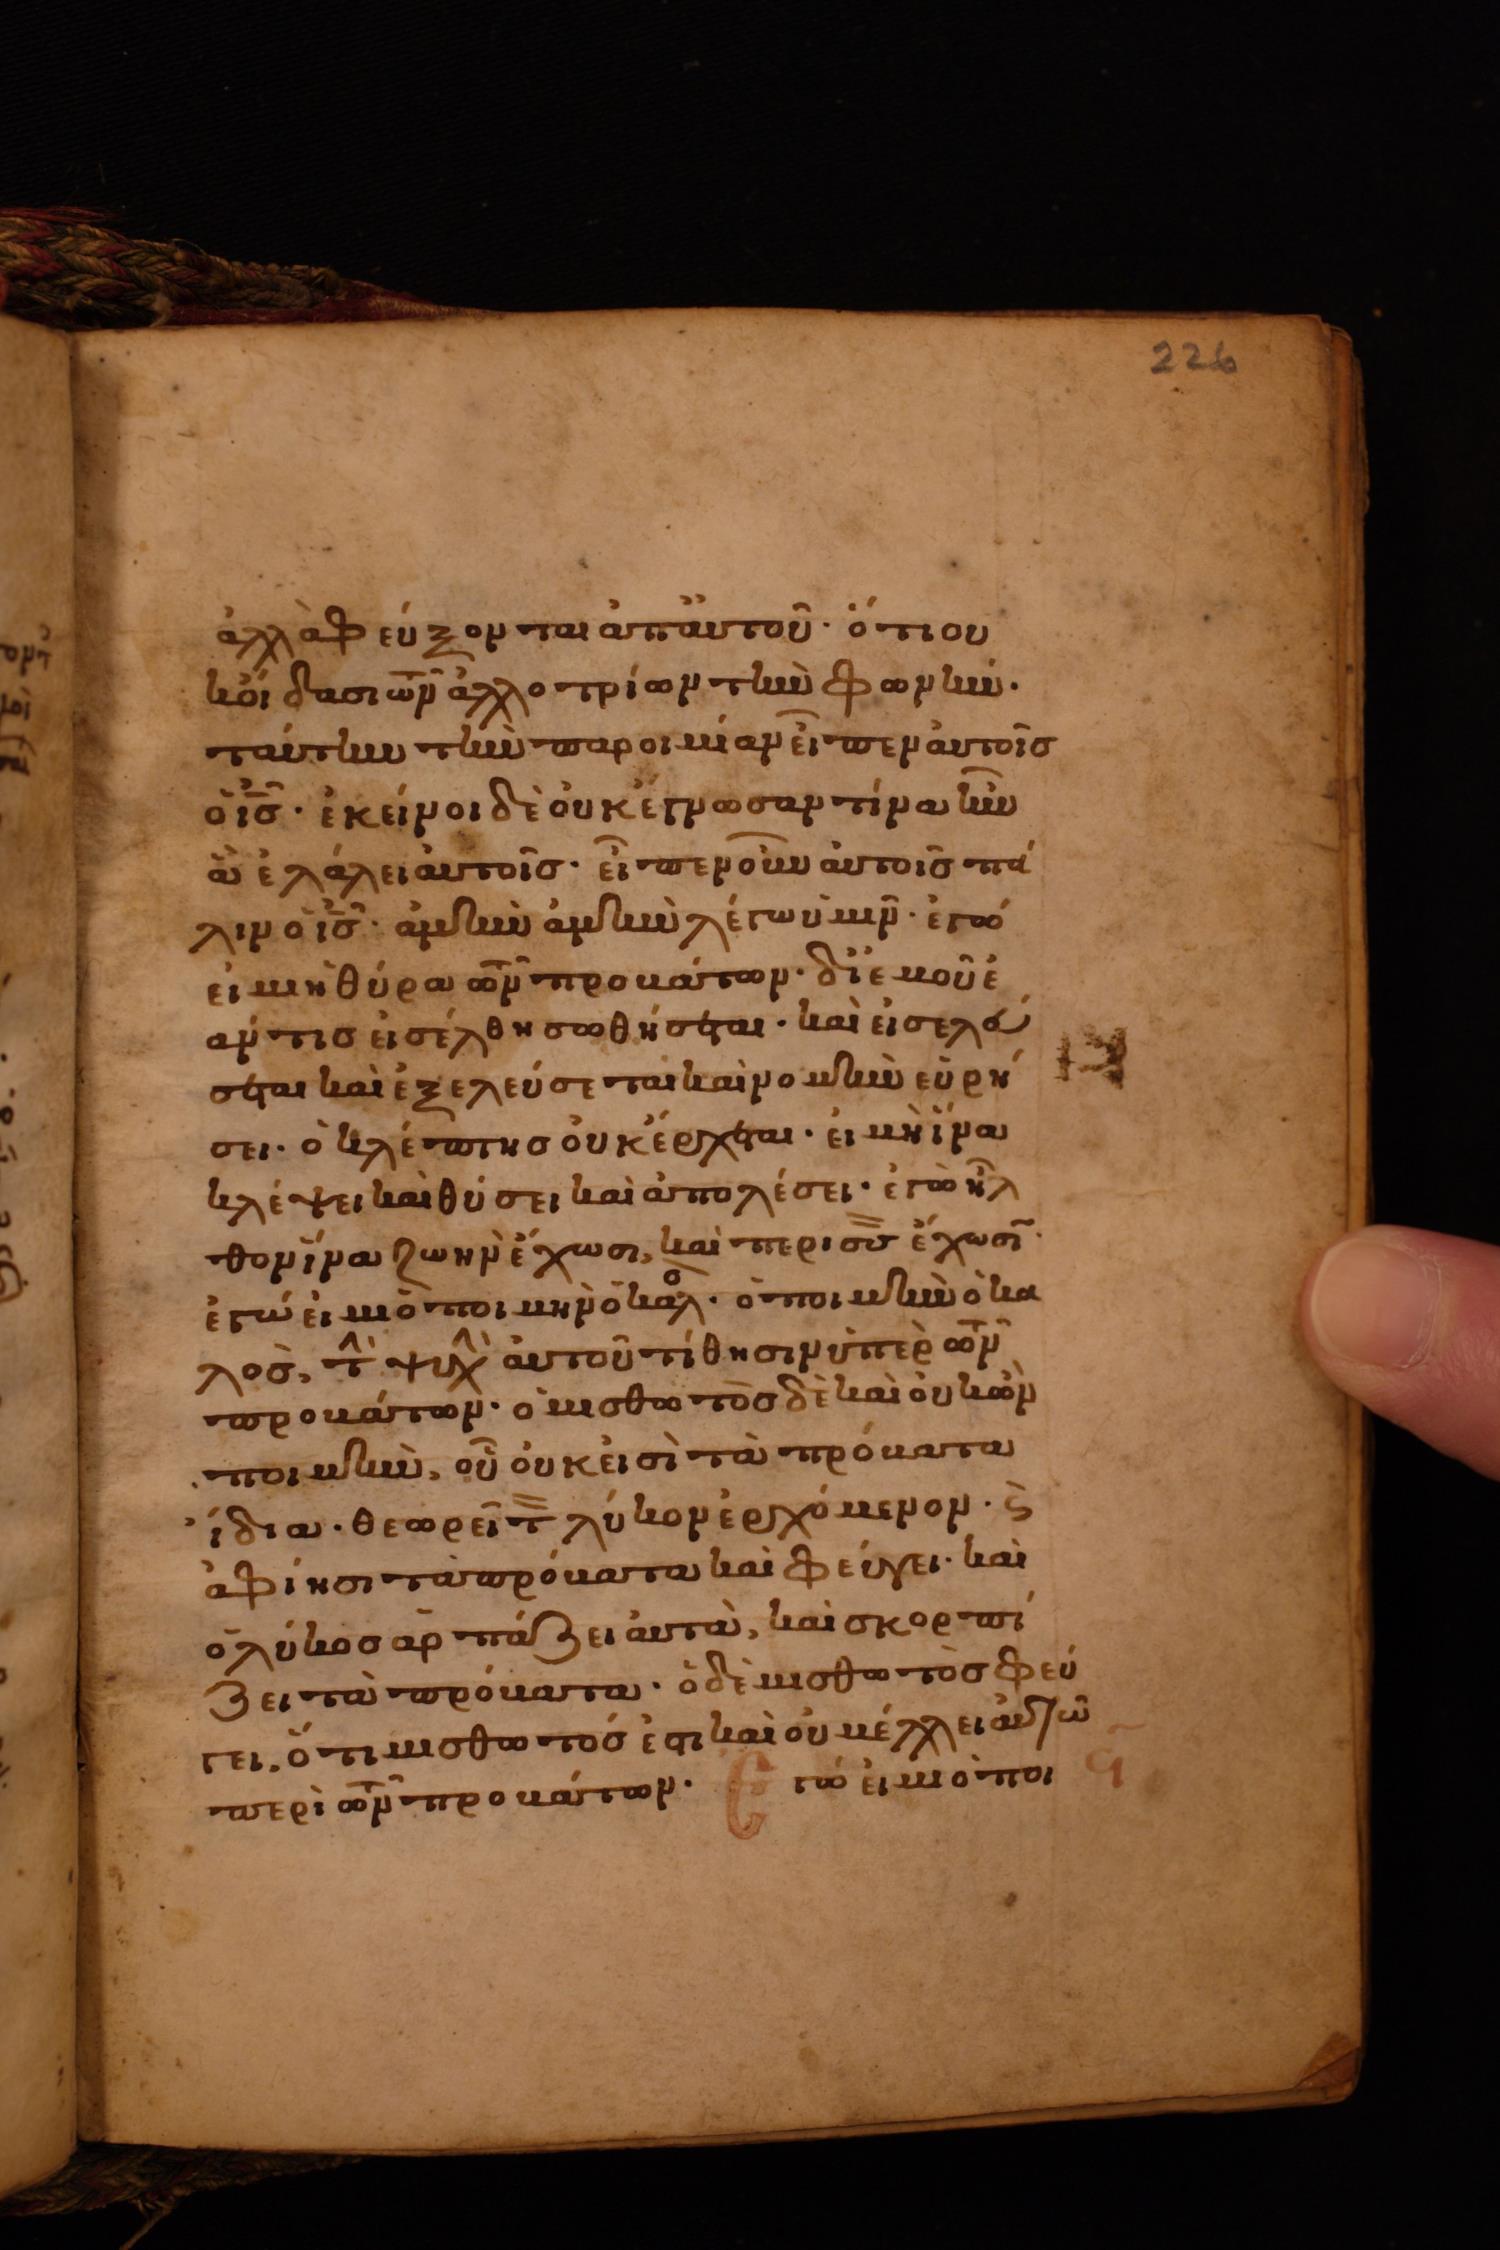 226
ἀλλὰ φεύξονται ἀπ' ἀυτοῦ· ὅτι ου
κ ὀίδασι τῶν ἀλλοτρίων τὴν φωνήν.
ταύτην τὴν παροιμίαν εἶπεν ἀυτοῖσ
ὁ ἰς̅· ἐκεῖνοι δὲ ὀυκ ἔγνωσαν τίνα ἦν
ἃ ἐλάλει ἀυτοῖσ· εἶπεν οὖν ἀυτοῖσ πά
λιν ὁ ἰς̅· ἀμὴν ἀμὴν λέγω ὑμῖν· ἐγώ
ειμι ἡ θύρα τῶν προβάτων· δι' ἐμοῦ ἐ
άν τισ εἰσέλθη σωθήσεται· καὶ εἰσελεύ
σεται καὶ ἐξελεύσεται καὶ νομὴν εὑρή
σει· ὁ κλέπτησ ὀυκ ἔρχεται· ἐι μὴ ἵνα
κλέψει καὶ θύσει καὶ ἀπολέσει· ἐγὼ ἦλ
θον ἵνα ζωὴν ἔχωσι, καὶ περισσὸν ἔχωσιν·
ἐγώ ειμι ὁ ποιμὴν ὁ καλός· ὁ ποιμὴν ὁ κα
λὸσ, τὴν ψυχὴν ἀυτοῦ τίθησιν ὑπὲρ τῶν
προβάτων· ὁ μισθωτὸσ δὲ καὶ ὀυκ ὢν
ποιμὴν, οὗ ὀυκ ἐισὶ τὰ πρόβατα
ἴδια· θεωρεῖ τὸν λύκον ἐρχόμενον· ϛ̀
ἀφίησι τὰ πρόβατα καὶ φεύγει· καὶ
ὁ λύκοσ ἁρπάζει ἀυτὰ, καὶ σκορπί
ζει τὰ πρόβατα· ὁ δὲ μισθωτὸσ φεύ
γει, ὅτι μισθωτόσ ἐστι καὶ ὀυ μέλλει ἀυτῶ
περὶ τῶν προβάτων· Ἐγώ ειμι ὁ ποι